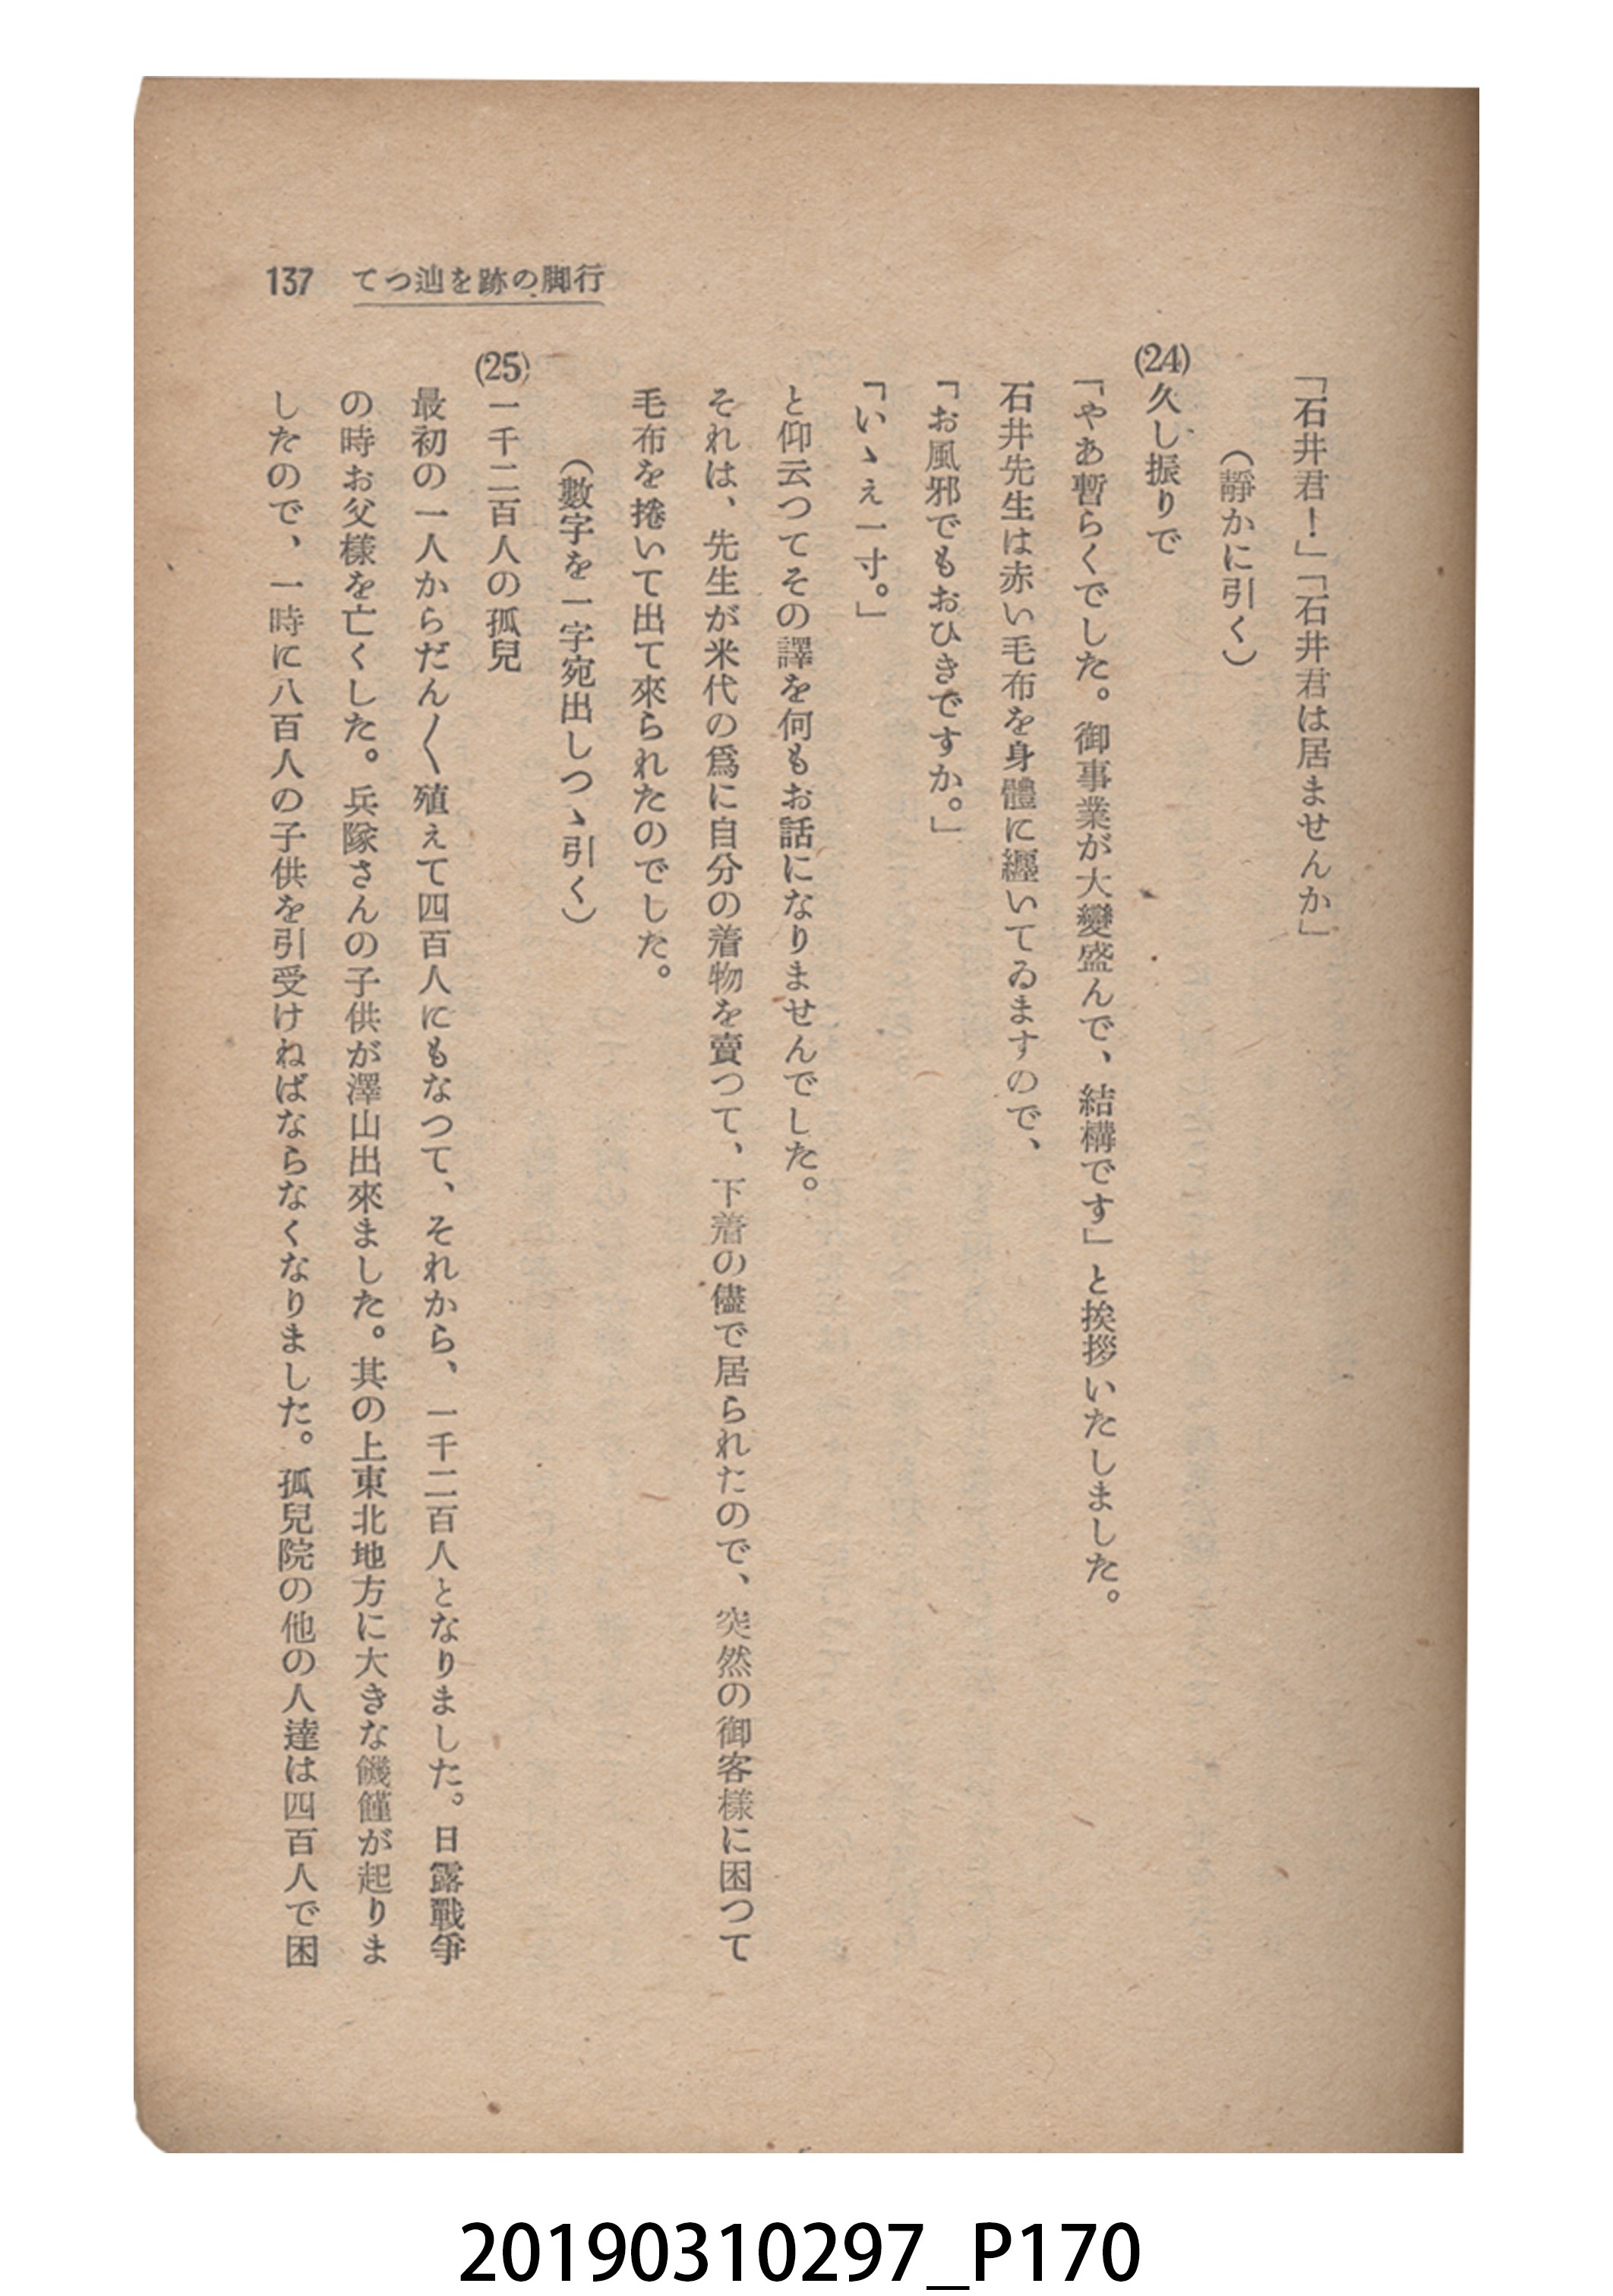 137 てつ辿を跡の脚行
「石井君！」「石井君は居ませんか」
（靜かに引く）
(24) 久し振りで
「やあ暫らくでした。御事業が大變盛んで、結構です」と挨拶いたしました。
石井先生は赤い毛布を身體に纒いてゐますので、
「お風邪でもおひきですか。」
「いゝえ一寸。」
と仰云つてその譯を何もお話になりませんでした。
それは、先生が米代の爲に自分の着物を賣つて、下着の儘で居られたので、突然の御客樣に困つて
毛布を捲いて出て來られたのでした。
（數字を一字宛出しつゝ引く）
(25) 一千二百人の孤兒
最初の一人からだん〱殖えて四百人にもなつて、それから、一千二百人となりました。日露戰爭
の時お父樣を亡くした。兵隊さんの子供が澤山出來ました。其の上東北地方に大きな饑饉が起りま
したので、一時に八百人の子供を引受けねばならなくなりました。孤兒院の他の人達は四百人で困
20190310297_P170